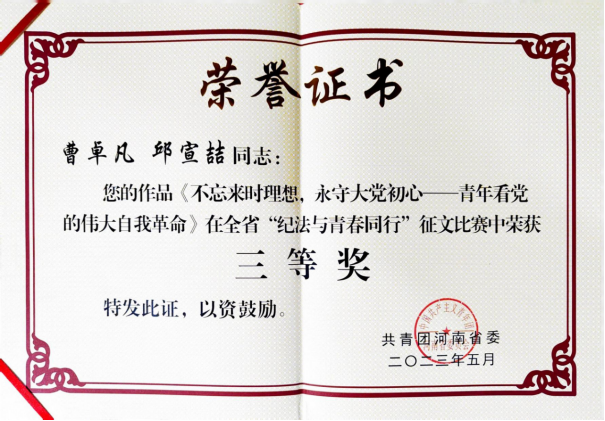 荣誉证书
曹卓凡 邱宣喆同志：
您的作品《不忘来时理想，永守大党初心——青年看党
的伟大自我革命》在全省“纪法与青春同行”征文比赛中荣获
三等奖
特发此证，以资鼓励。
共青团河南省委
二〇二三年五月
中国共产主义青年团
河南省委员会